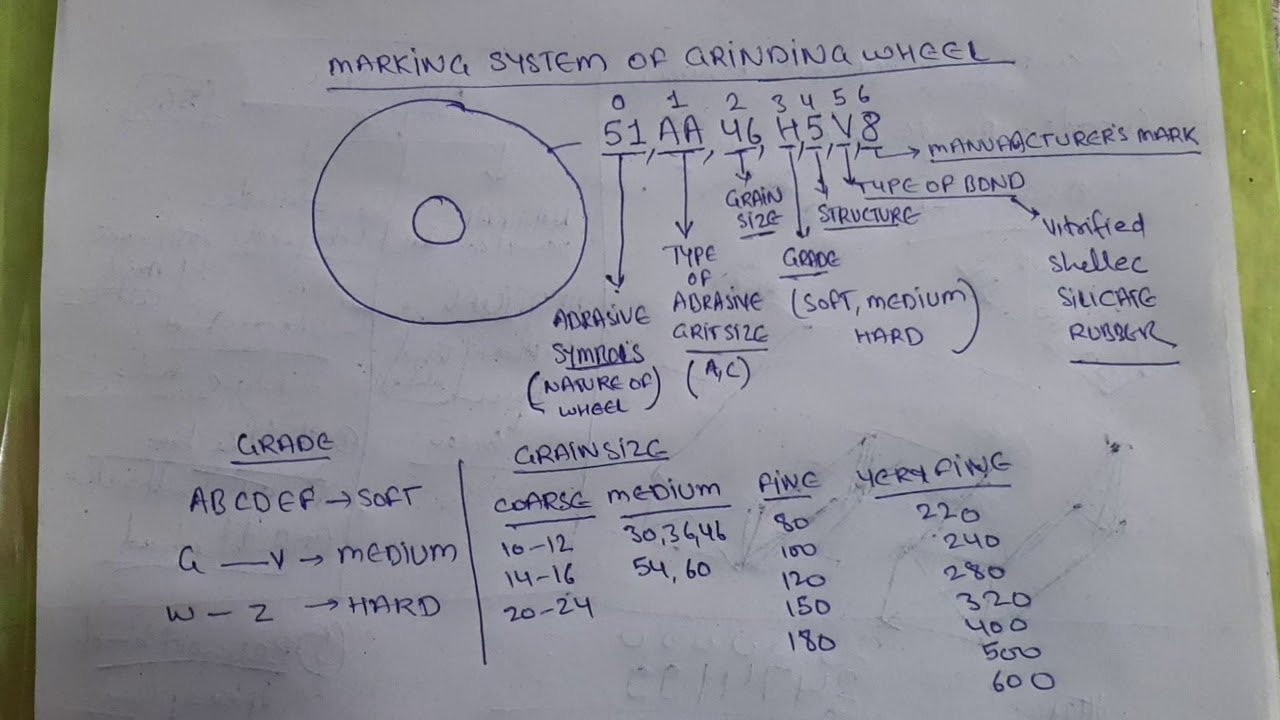 MARKING SYSTEM OF GRINDING WHEEL
0 1 2 3 4 5 6
51, AA, 46, H, 5, V, 8
MANUFACTURER'S MARK
TYPE OF BOND
Vitrified
Shellec
SILICATE
RUBBER
STRUCTURE
GRAIN
SIZE
GRADE
(SOFT, MEDIUM
HARD)
TYPE
OF
ABRASIVE
GRIT SIZE
(A,C)
ABRASIVE
SYMBOLS
(NATURE OF
WHEEL)
GRADE
ABCDEF → SOFT
G — V → MEDIUM
W — Z → HARD
GRAIN SIZE
COARSE MEDIUM FINE VERY FINE
10-12 30,36,46 80 220
14-16 54, 60 100 240
20-24 120 280
150 320
180 400
500
600